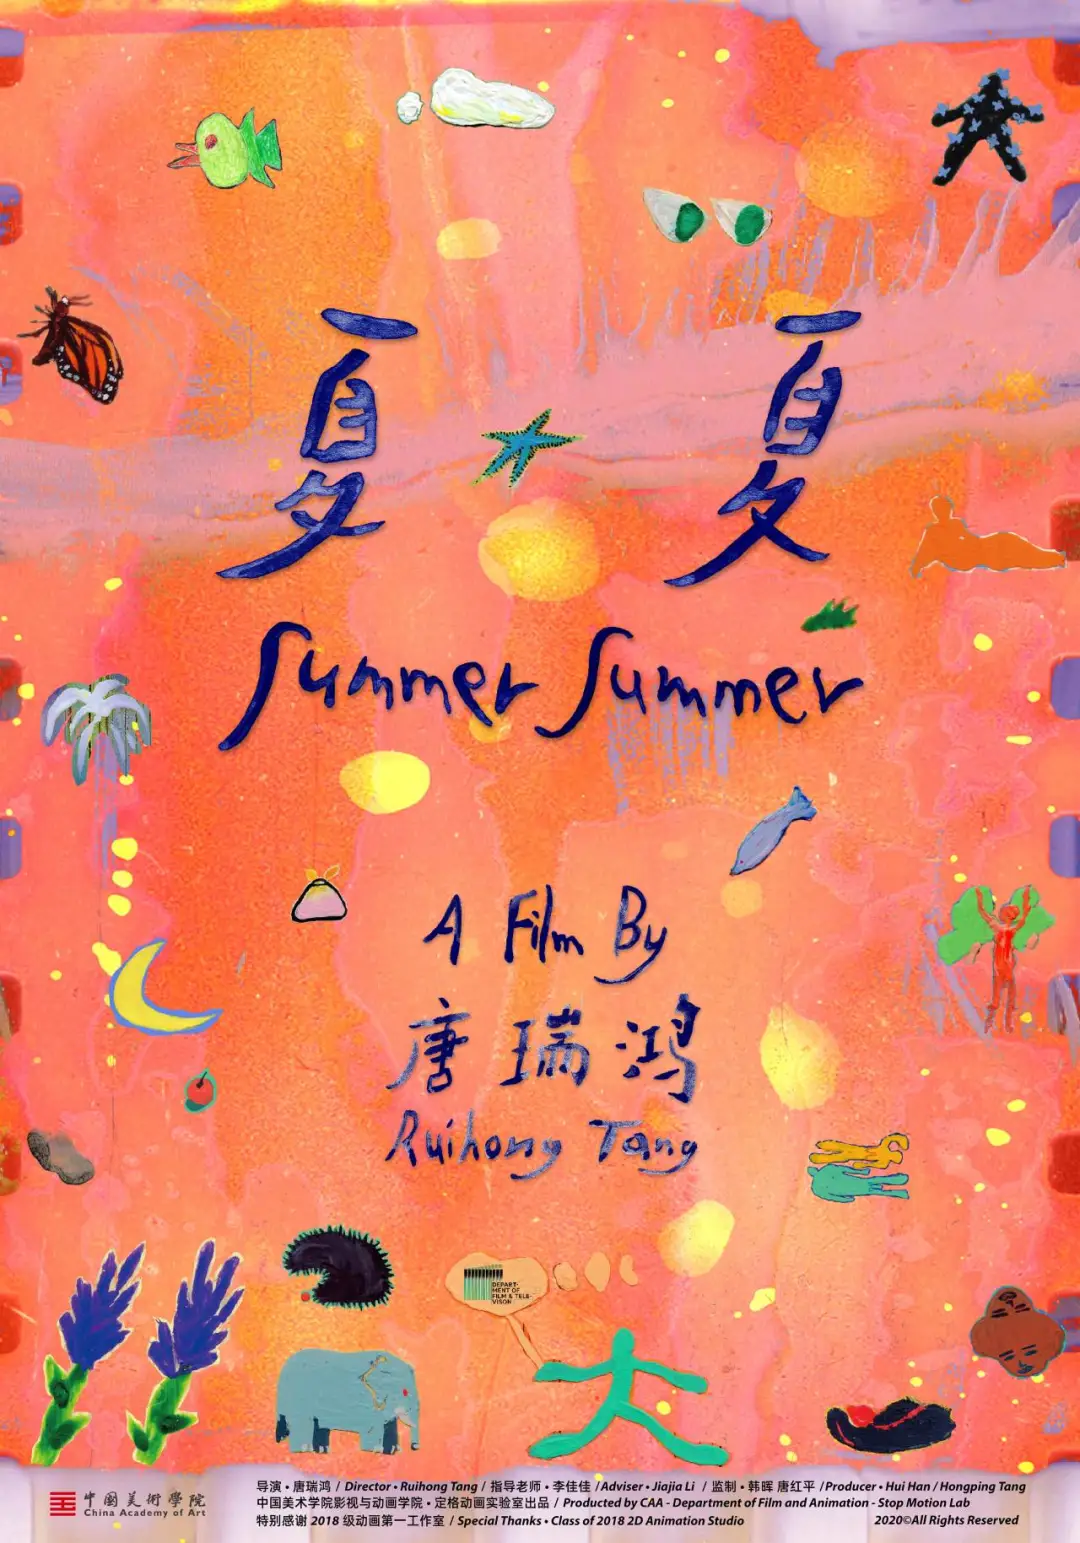 夏夏
Summer Summer
A Film By
唐瑞鸿
Ruihong Tang
DEPART-
MENT OF
FILM & TELE-
VISON
中国美術學院
China Academy of Art
导演・唐瑞鸿 / Director・Ruihong Tang / 指导老师・李佳佳 /Adviser・Jiajia Li / 监制・韩晖 唐红平 /Producer・Hui Han / Hongping Tang
中国美术学院影视与动画学院・定格动画实验室出品 / Producted by CAA - Department of Film and Animation - Stop Motion Lab
特别感谢 2018 级动画第一工作室 / Special Thanks・Class of 2018 2D Animation Studio
2020©All Rights Reserved